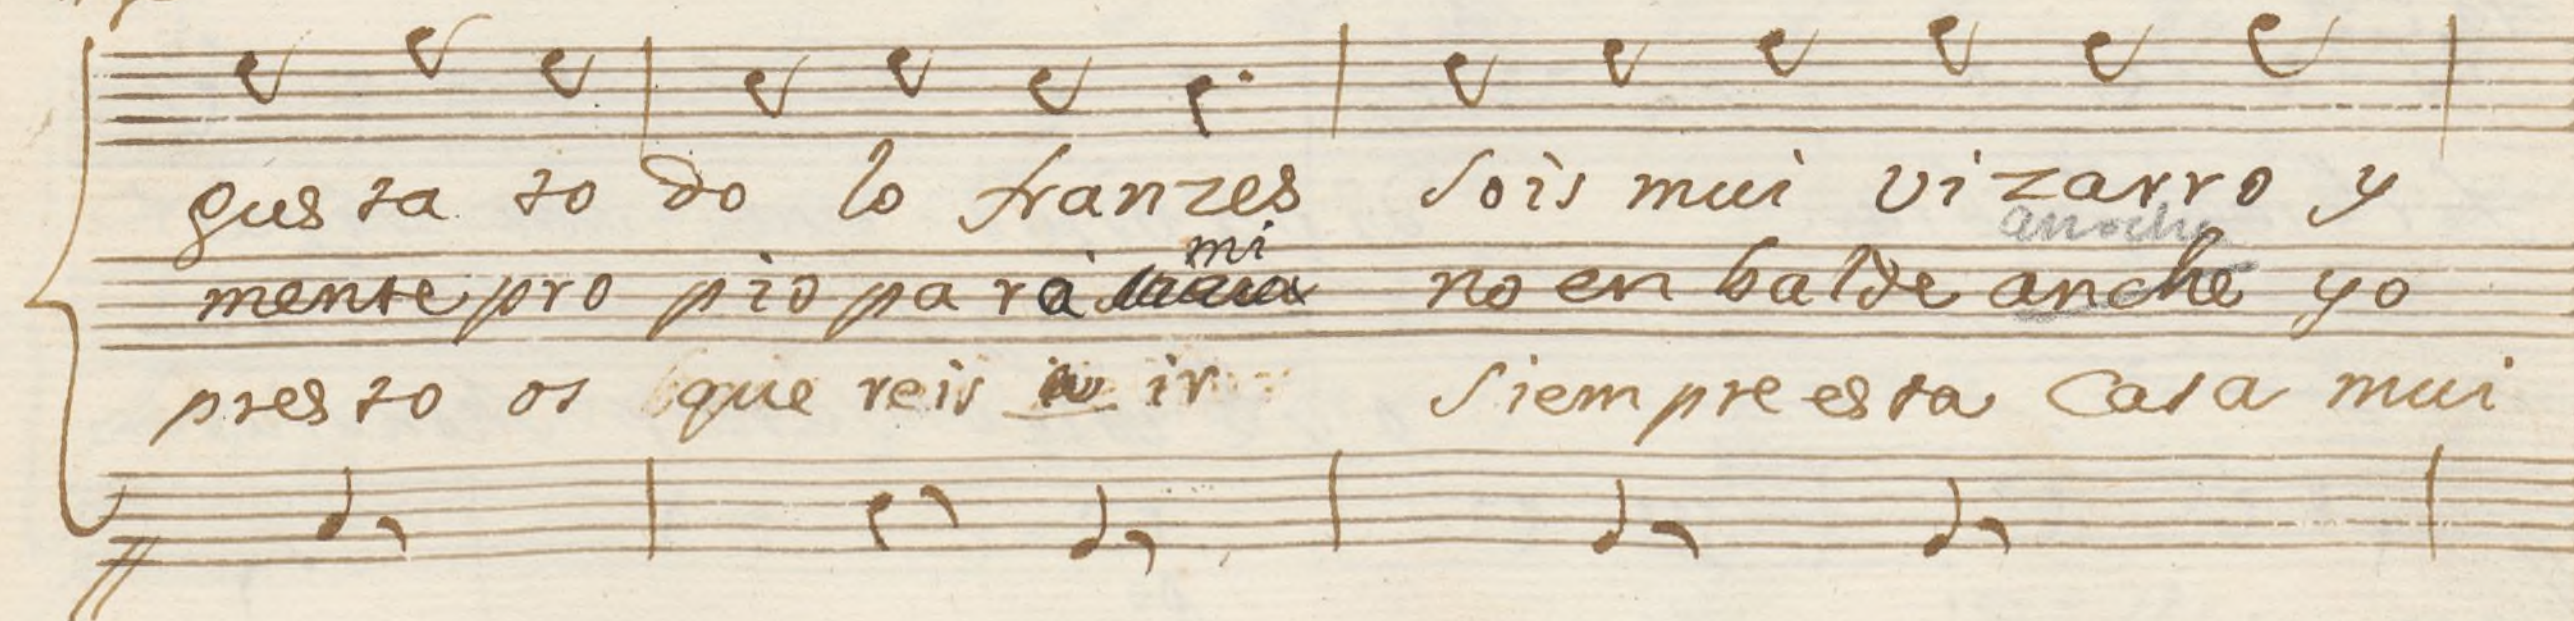 gus ta to do lo franzes sois mui vi zarro y
mi anoche
mente pro pio pa ra no en balde anche yo
pres to os que reis ir siempre esta casa mui